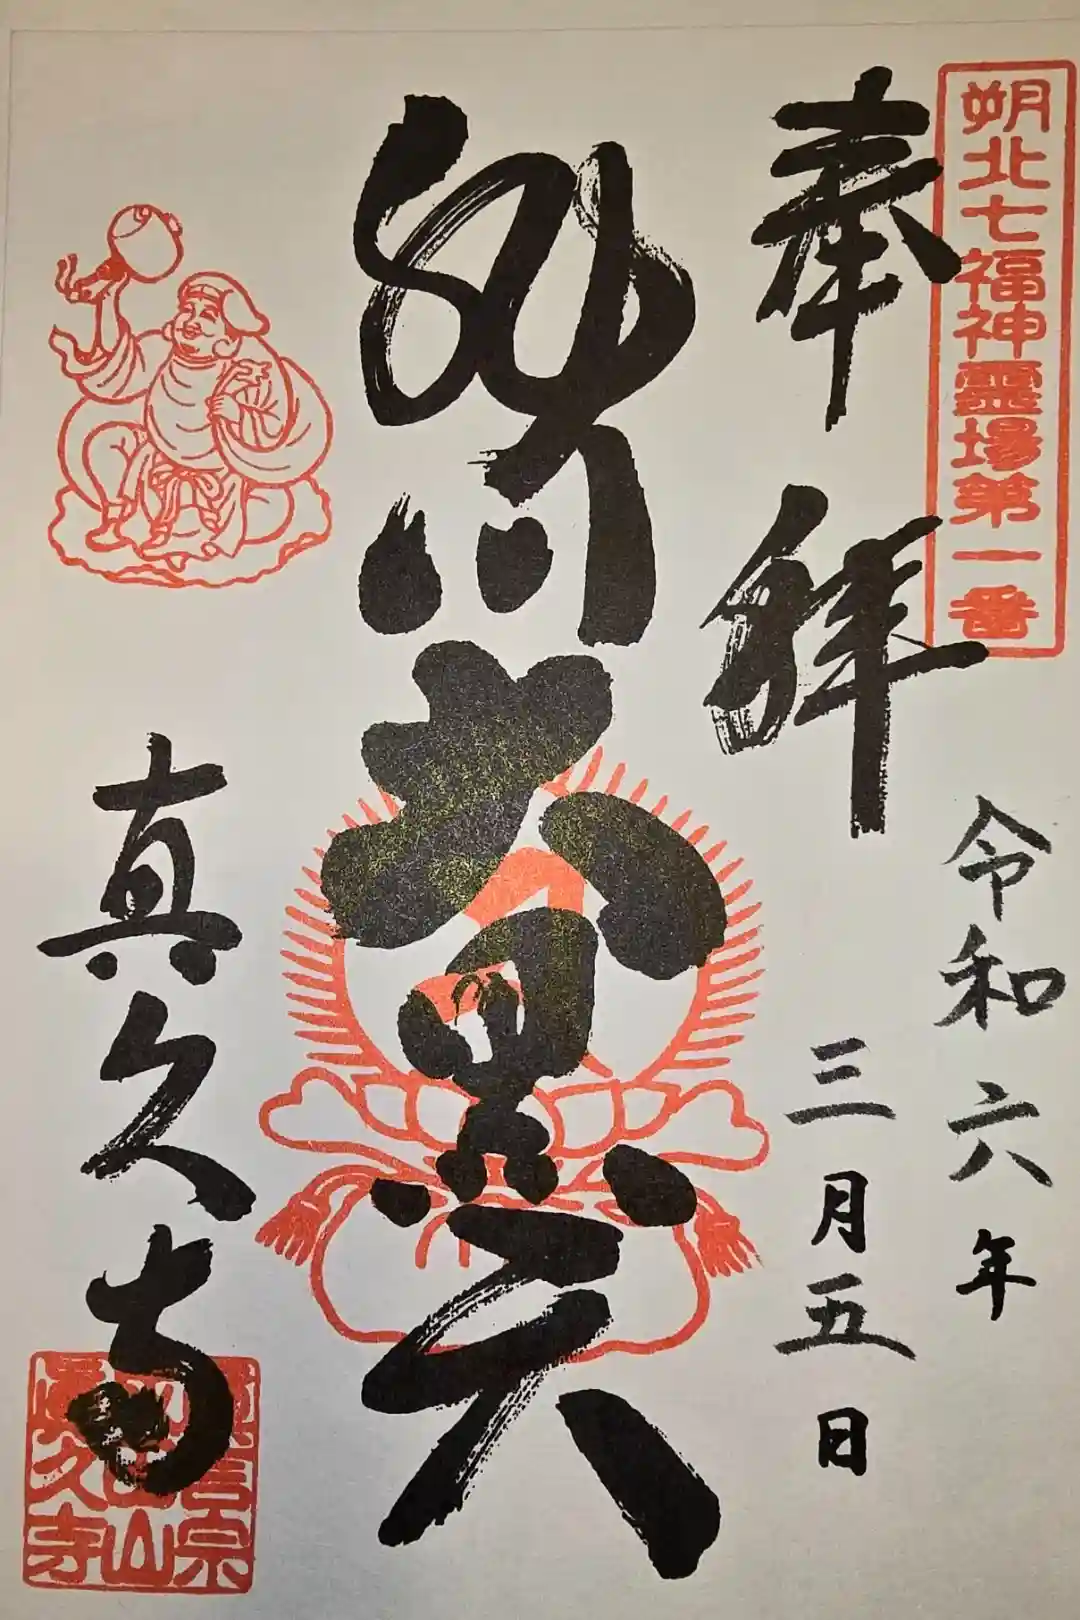 朔北七福神霊場第一番
奉拝
令和六年
三月五日
大黒天
真久寺
真言宗
山
眞久寺